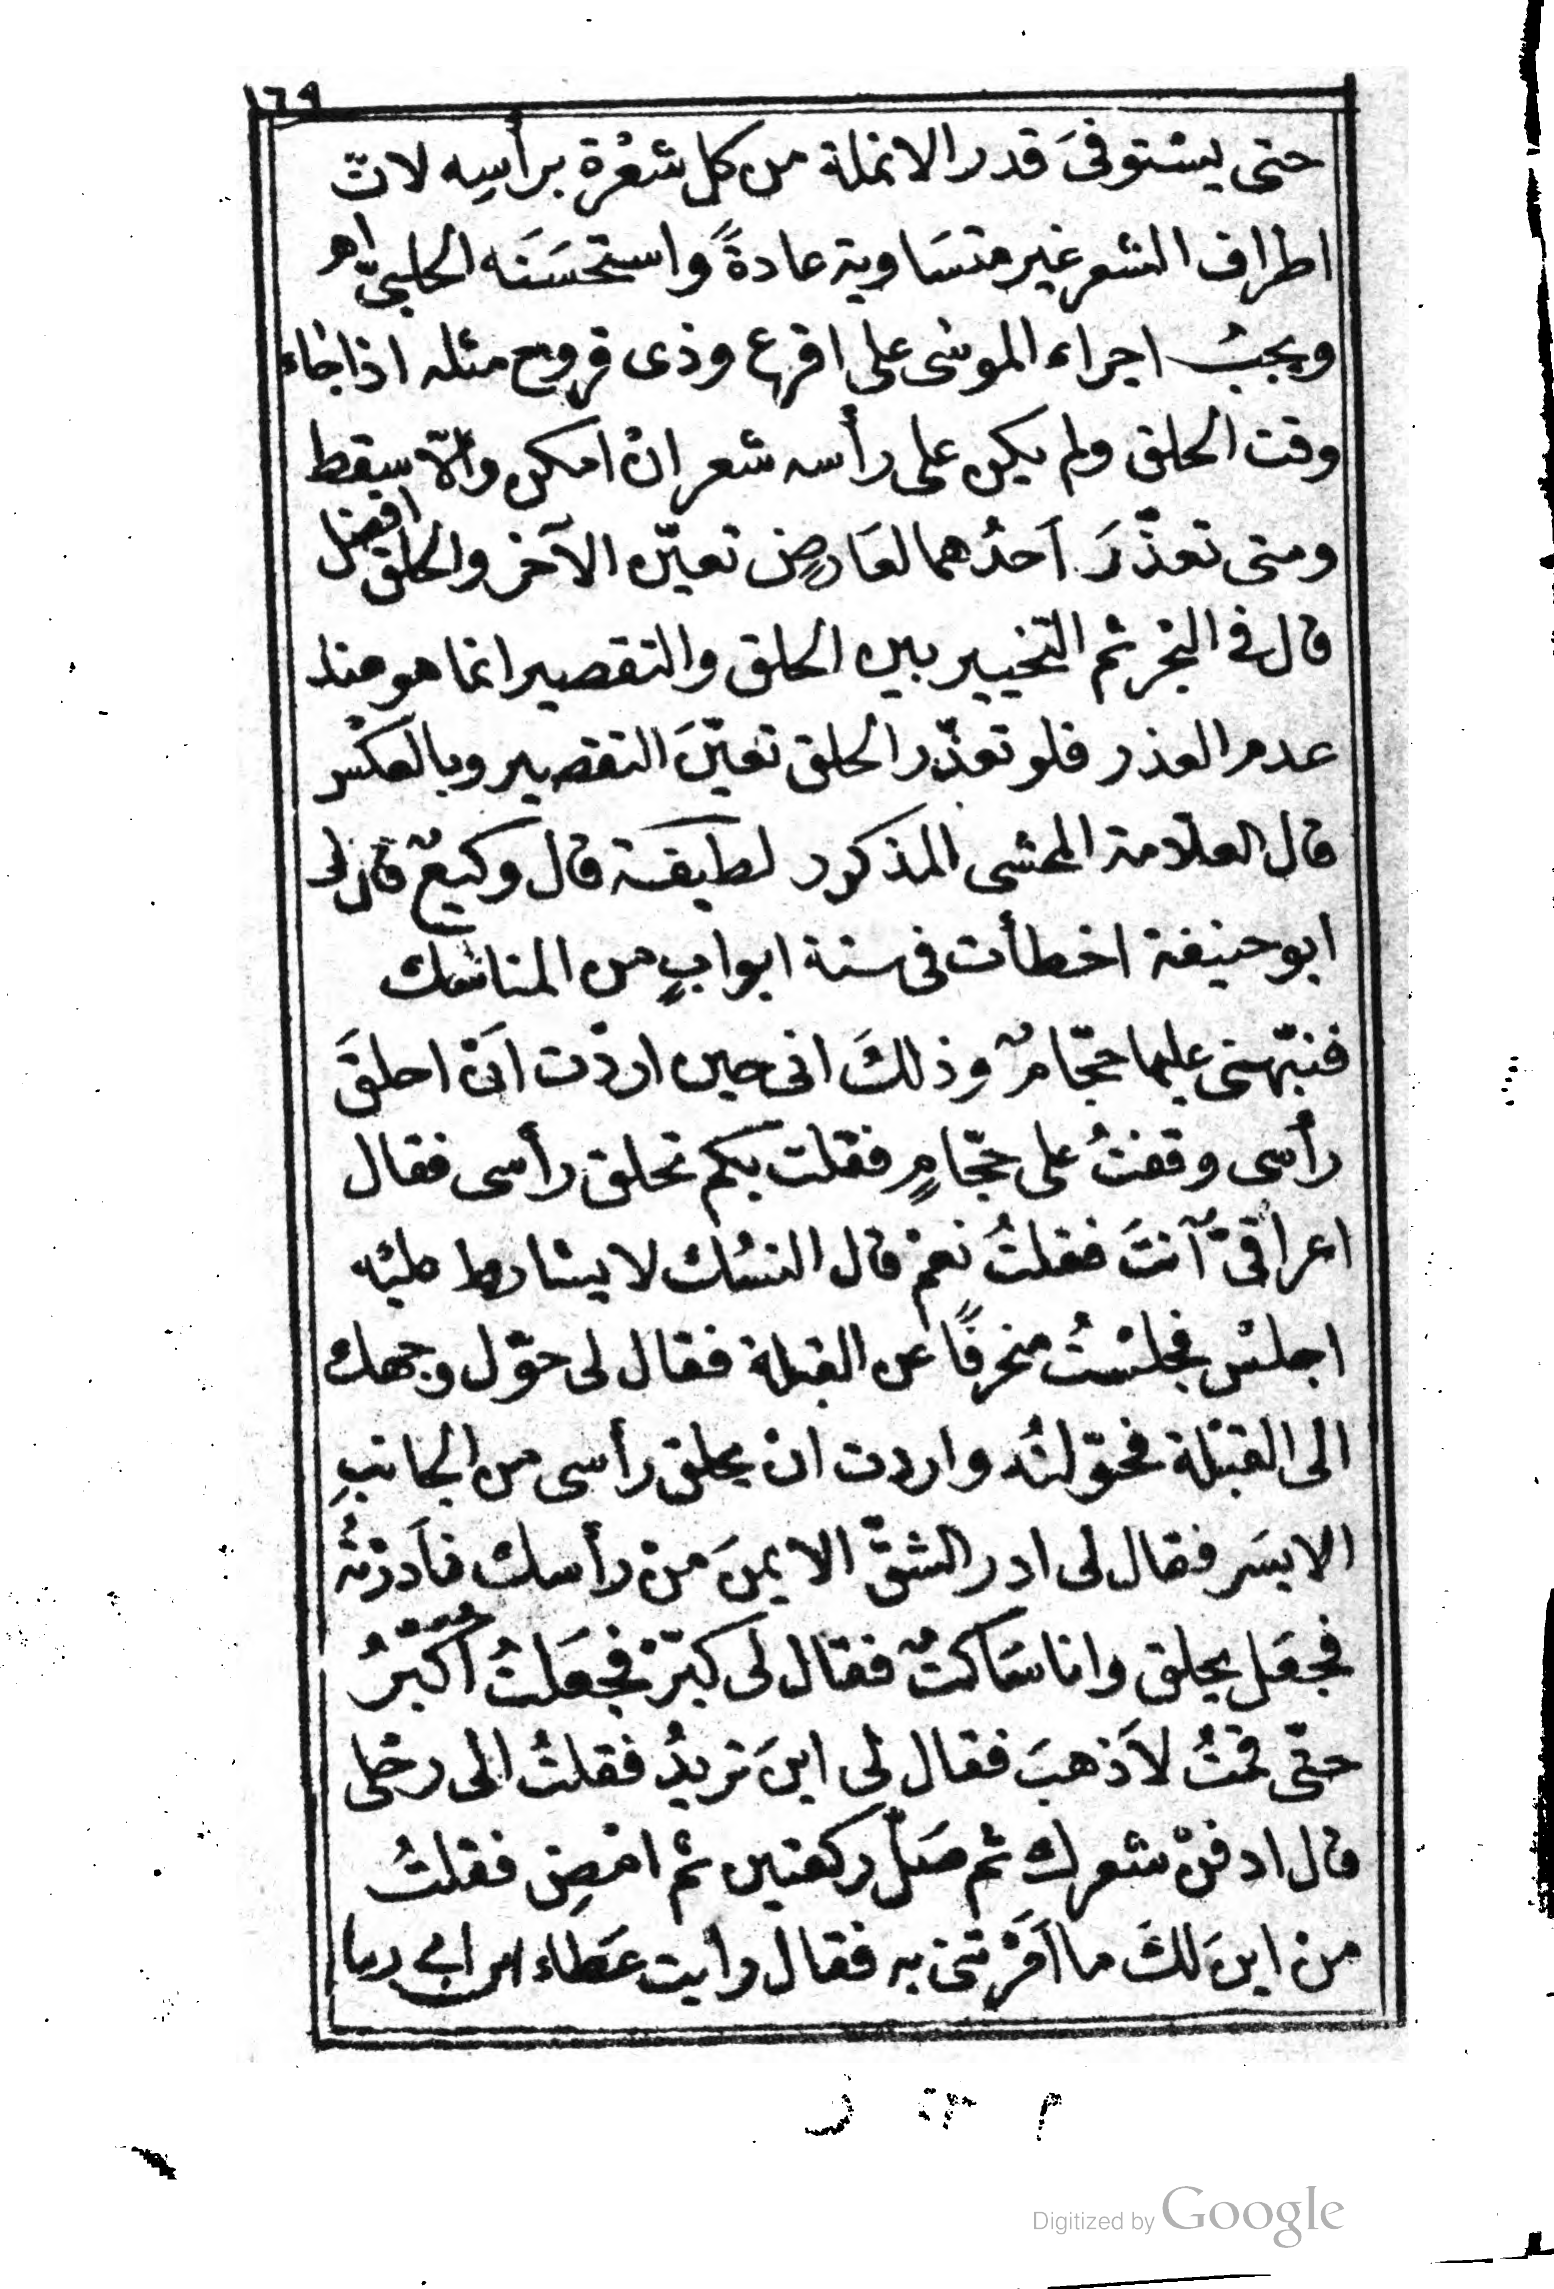 ١٦٩
حتى يسْتوفىَ قدر الانملة من كل شعْرة برأسِه لانّ
اطراف الشعر غير متسَاوية عادةً واستحسَنَه الحلبىّ اهـ
ويجبُ اجراء الموسٰى على اقرع وذى قروح مثله اذا جاء
وقت الحلق ولم يكن على رأسه شعر انْ امكن والّا سقط
ومتى تعذّرَ اَحدُهما لعَارضٍ تعيّن الآخر والحلق افضل
قال فى البحر ثم التّخيير بين الحلق والتقصير انما هو عند
عدم العذر فلو تعذّر الحلق تعيّنَ التقصير وبالعكْس
قال العلّامة المحشى المذكور لطيفة قال وكيعٌ قال لى
ابو حنيفة اخطأت فى ستة ابوابٍ من المناسك
فنبّهنى عليها حجّامٌ وذلكَ انى حين اردْت اَنْ احلقَ
رأسى وقفتُ على حجّامٍ فقلت بكم تحلق رأسى فقال
اعراقىّ آنتَ فقلتُ نعمْ قال النسُك لا يشارط عليْه
اجلسْ فجلسْتُ منحرفًا عن القبلة فقال لى حوّل وجهك
الى القبْلة فحوّلتُه واردت انْ يحلق رأسى من الجانبِ
الايسَر فقال لى ادر الشقّ الايمنَ منْ رأسك فاَدرْتُه
فجعَل يحلق وانا ساكتٌ فقال لى كبّرْ فجعَلتُ اُكَبّرُ
حتّى قمتُ لاَذهبَ فقال لى اينَ تريدُ فقلتُ الى رحْلى
قال ادفنْ شعرك ثم صَلّ ركعتين ثم امْضِ فقلتُ
منْ اينَ لكَ ما اَمَرْتنى به فقال رأيت عَطاء ابن ابى ربا
Digitized by Google